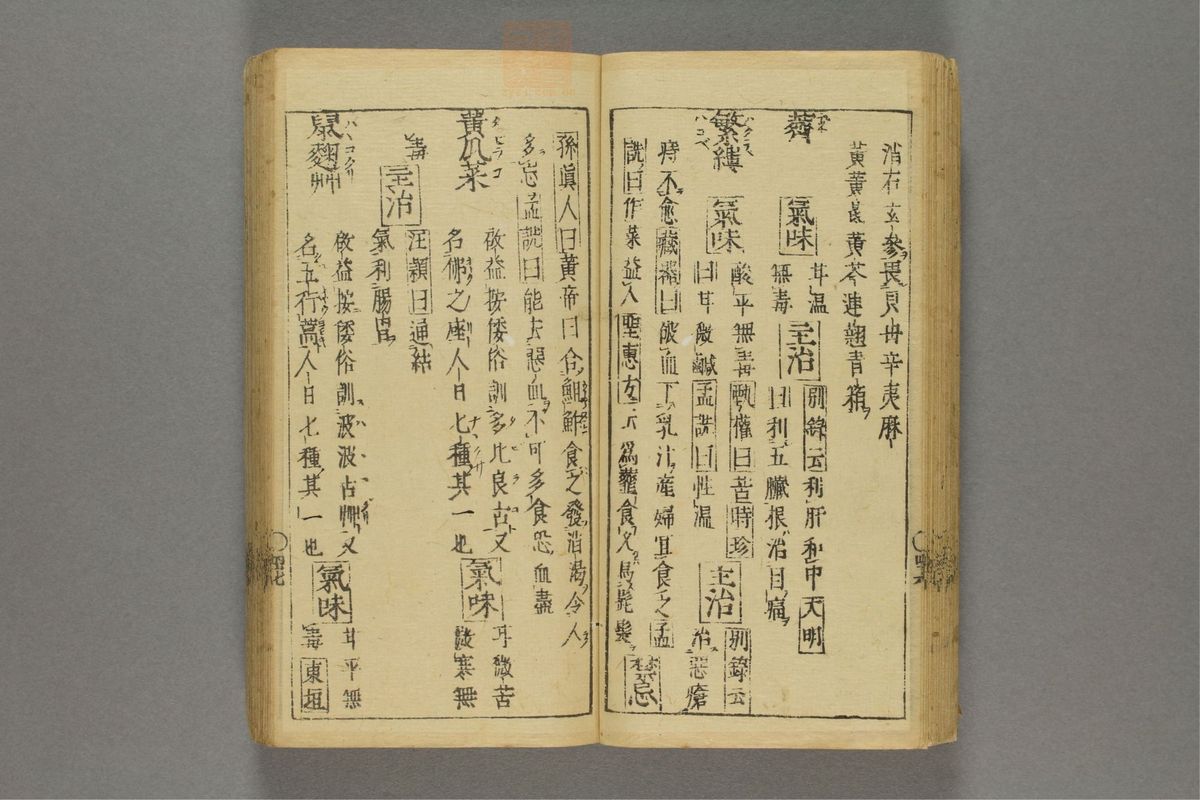 消石玄參畏貝母辛夷麻
黃黃蓍黃芩連翹青箱
薺
氣味
甘溫
無毒
主治
別錄云利肝和中大明
曰利五臟根治目痛
繁縷
ハコベ
氣味
酸平無毒甄權曰苦時珍
曰甘微鹹孟詵曰性溫
主治
別錄云
治惡瘡
時不愈藏器曰破血下乳汁産婦宜食之孟
詵曰作菜益人聖惠方云爲虀食久烏髭髮
禁忌
孫眞人曰黃帝曰合鮓食之發消渴令人
多忘孟詵曰能去惡血不可多食恐血盡
黃瓜菜
タビラコ
啟益按倭俗訓多比良古又
名佛之座人日七種其一也
氣味
甘微苦
微寒無
毒
主治
汪穎曰通結
氣利腸胃
鼠麴艸
ハハコクサ
啟益按倭俗訓波波古艸又
名五行蒿人日七種其一也
氣味
甘平無
毒東垣
四七